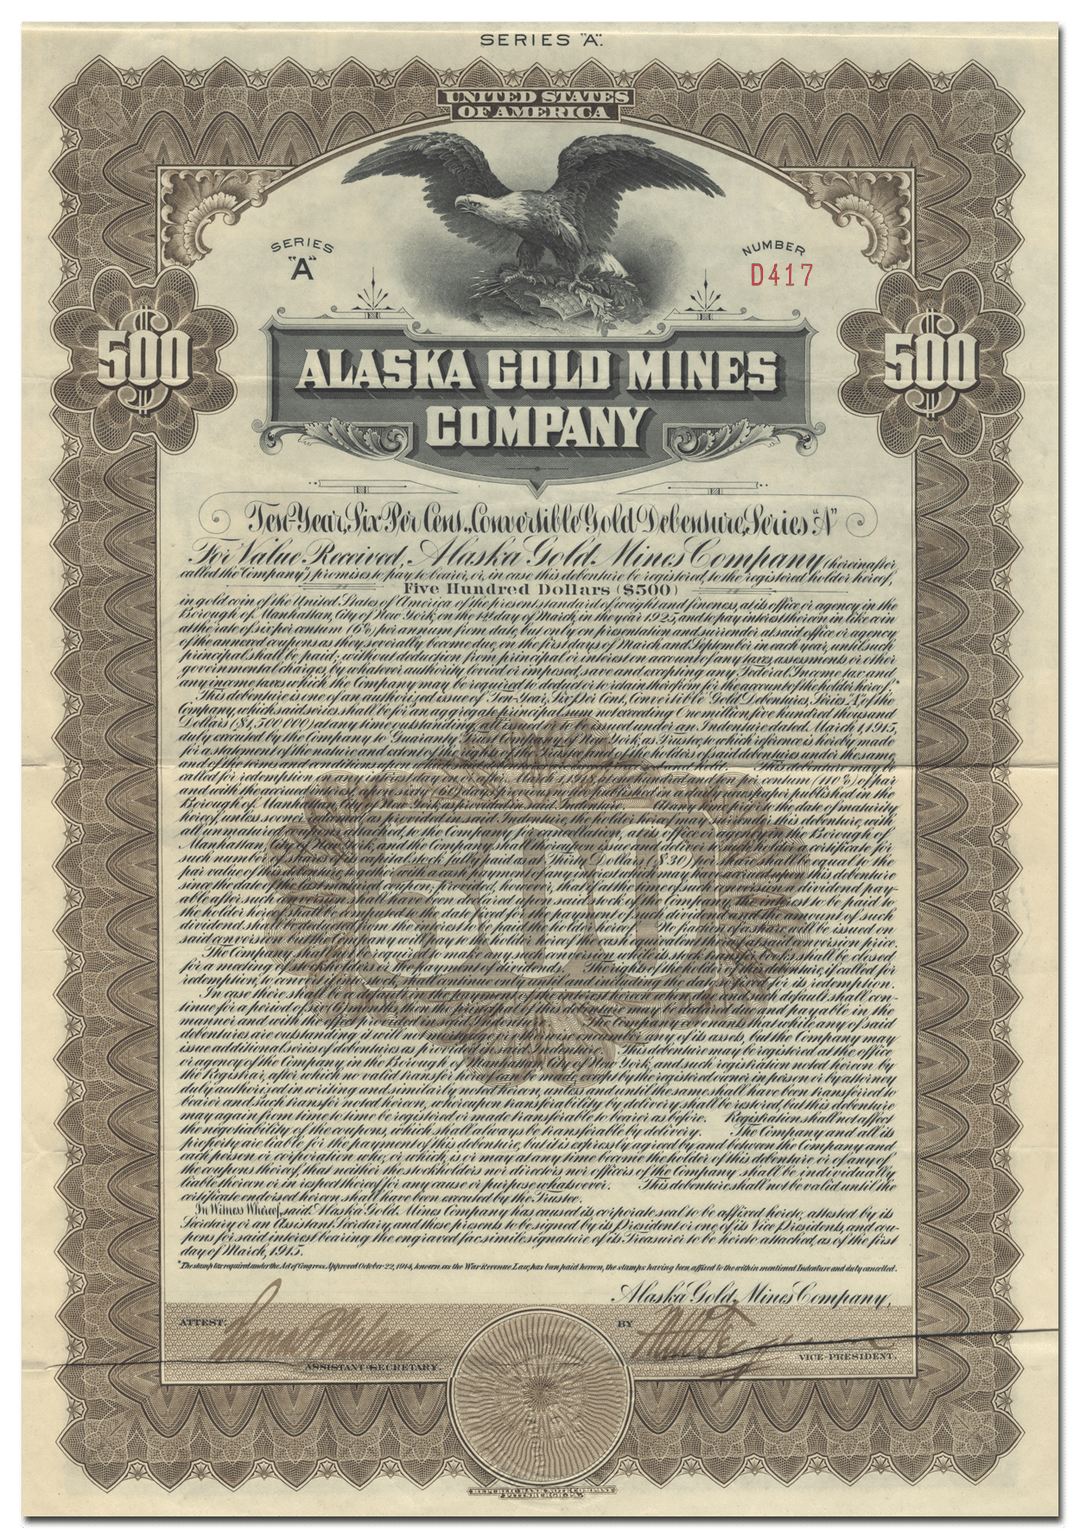 SERIES "A".
UNITED STATES
OF AMERICA
SERIES
"A"
NUMBER
D417
500
500
ALASKA GOLD MINES
COMPANY
Ten-Year, Six Per Cent., Convertible Gold Debenture, Series "A"
For Value Received, Alaska Gold Mines Company (hereinafter
called the "Company") promises to pay to bearer, or, in case this debenture be registered, to the registered holder hereof,
Five Hundred Dollars ($500)
in gold coin of the United States of America of the present standard of weight and fineness, at its office or agency in the
Borough of Manhattan, City of New York, on the 1st day of March, in the year 1925, and to pay interest thereon in like coin
at the rate of six per centum (6%) per annum from date, but only on presentation and surrender at said office or agency
of the annexed coupons as they severally become due, on the first days of March and September in each year, until such
principal shall be paid; without deduction from principal or interest on account of any taxes, assessments or other
governmental charges, by whatever authority levied or imposed, save and excepting any Federal Income tax and
any income taxes which the Company may be required to deduct or to retain therefrom for the account of the holder hereof.*
This debenture is one of an authorized issue of Ten-Year, Six Per Cent, Convertible Gold Debentures, Series A, of the
Company, which said series shall be for an aggregate principal sum not exceeding One million five hundred thousand
Dollars ($1,500,000) at any time outstanding, all issued or to be issued under an Indenture dated March 1, 1915,
duly executed by the Company to Guaranty Trust Company of New York, as Trustee, to which reference is hereby made
for a statement of the nature and extent of the rights of the Trustee and of the holders of said debentures under the same,
and of the terms and conditions upon which said debentures are issued and held. This debenture may be
called for redemption on any interest day on or after March 1, 1918, at one hundred and ten per centum (110%) of par
and with the accrued interest, upon sixty (60) days previous notice published in a daily newspaper published in the
Borough of Manhattan, City of New York, as provided in said Indenture. At any time prior to the date of maturity
hereof, unless sooner redeemed, as provided in said Indenture, the holder hereof may surrender this debenture, with
all unmatured coupons attached, to the Company for cancellation, at its office or agency in the Borough of
Manhattan, City of New York, and the Company shall thereupon issue and deliver to such holder a certificate for
such number of shares of its capital stock fully paid as at Thirty Dollars ($30) per share shall be equal to the
par value of this debenture, together with a cash payment of any interest which may have accrued upon this debenture
since the date of the last matured coupon; provided, however, that if at the time of such conversion a dividend pay-
able after such conversion shall have been declared upon said stock of the Company, the interest to be paid to
the holder hereof shall be computed to the date fixed for the payment of such dividend and the amount of such
dividend shall be deducted from the interest to be paid the holder hereof. No fraction of a share will be issued on
said conversion but the Company will pay to the holder hereof the cash equivalent thereof at said conversion price.
The Company shall not be required to make any such conversion while its stock transfer books shall be closed
for a meeting of stockholders or the payment of dividends. The rights of the holder of this debenture, if called for
redemption, to convert it into stock, shall continue only until and including the date so fixed for its redemption.
In case there shall be a default in the payment of the interest hereon when due and such default shall con-
tinue for a period of six (6) months, then the principal of this debenture may be declared due and payable in the
manner and with the effect provided in said Indenture. The Company covenants that while any of said
debentures are outstanding it will not mortgage or otherwise encumber any of its assets, but the Company may
issue additional series of debentures as provided in said Indenture. This debenture may be registered at the office
or agency of the Company, in the Borough of Manhattan, City of New York, and such registration noted hereon by
the Registrar, after which no valid transfer hereof can be made, except by the registered owner in person or by attorney
duly authorized in writing and similarly noted hereon, unless and until the same shall have been transferred to
bearer and such transfer noted hereon, whereupon transferability by delivery shall be restored, but this debenture
may again from time to time be registered or made transferable to bearer as before. Registration shall not affect
the negotiability of the coupons, which shall always be transferable by delivery. The Company and all its
property are liable for the payment of this debenture, but it is expressly agreed by and between the Company and
each person or corporation who, or which, is or may at any time become the holder of this debenture or of any of
the coupons thereof, that neither the stockholders nor directors nor officers of the Company shall be individually
liable thereon or in respect thereof for any cause or purpose whatsoever. This debenture shall not be valid until the
certificate endorsed hereon shall have been executed by the Trustee.
In Witness Whereof, said Alaska Gold Mines Company has caused its corporate seal to be affixed hereto, attested by its
Secretary or an Assistant Secretary, and these presents to be signed by its President or one of its Vice Presidents, and cou-
pons for said interest bearing the engraved facsimile signature of its Treasurer to be hereto attached, as of the first
day of March, 1915.
*The stamp tax required under the Act of Congress Approved October 22, 1914, known as the War Revenue Law, has been paid hereon, the stamps having been affixed to the within mentioned Indenture and duly cancelled.
Alaska Gold Mines Company,
ATTEST:
ASSISTANT SECRETARY.
BY
VICE-PRESIDENT.
REPUBLIC BANK NOTE COMPANY
PITTSBURGH, PA.